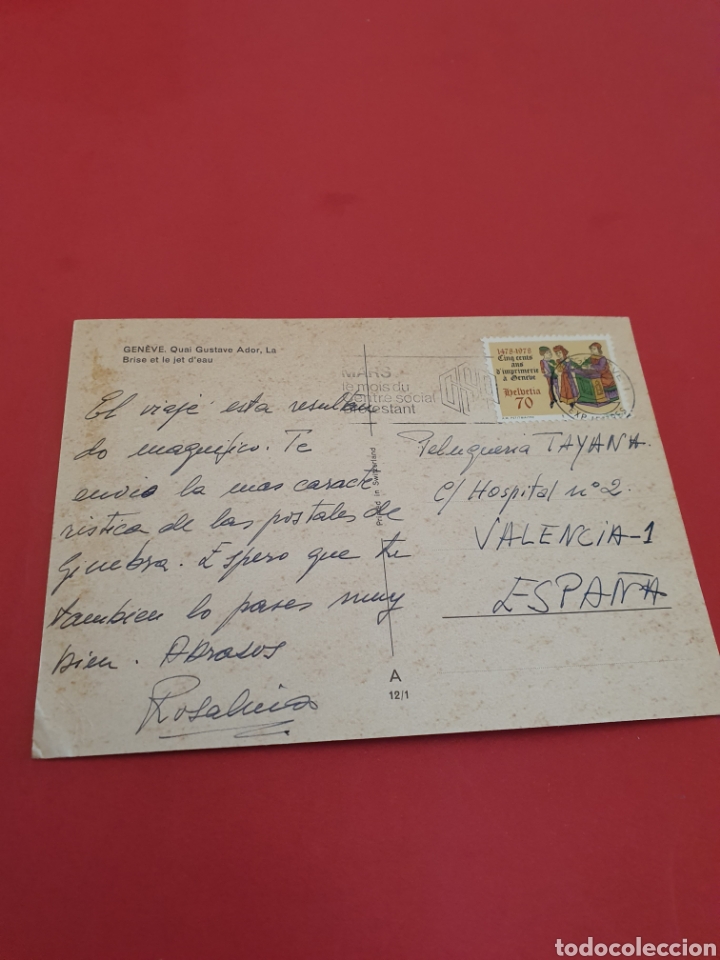 GENÈVE. Quai Gustave Ador, La
Brise et le jet d'eau
El viaje esta resultan
do magnifico. Te
envio la mas caracte
ristica de las postales de
Ginebra. Espero que tu
tambien lo pases muy
bien. Abrasos
Printed in Switzerland
A
12/1
MARS
le mois du
centre social
protestant
1478-1978
Cinq cents
ans
d'imprimerie
à Genève
Helvetia
70
Peluqueria TAYANA.
C/ Hospital nº 2.
VALENCIA-1
ESPAÑA
todocoleccion